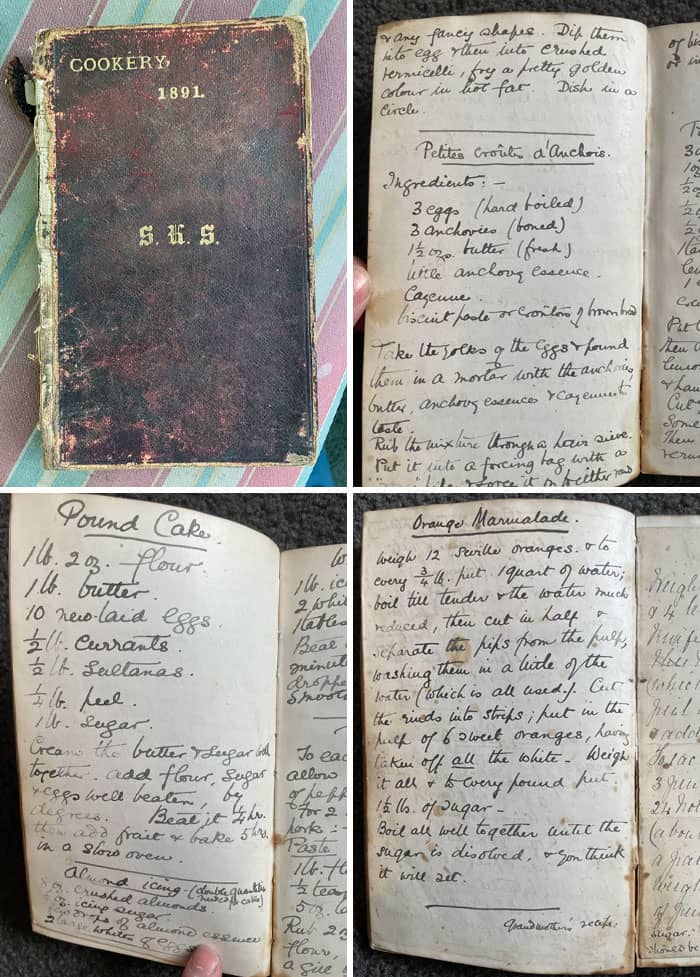 COOKERY,
1891.
S. K. S.
& any fancy shapes. Dip them
into egg & then into crushed
vermicelli, fry a pretty golden
colour in hot fat. Dish in a
circle.
Petites Croûtes d'Anchois.
Ingredients: –
3 eggs (hard boiled)
3 anchovies (boned)
1½ ozs. butter (fresh)
little anchovy essence.
Cayenne.
biscuit paste or croûtons of brown bread
Take the yolks of the eggs & pound
them in a mortar with the anchovies,
butter, anchovy essence & cayenne to
taste.
Rub the mixture through a hair sieve.
Put it into a forcing bag with a
& force it on to either
Pound Cake.
1 lb. 2 oz. flour.
1 lb. butter.
10 new-laid eggs.
½ lb. Currants.
½ lb. Sultanas.
¼ lb. peel.
1 lb. Sugar.
Cream the butter & sugar well
together. add flour, sugar
& eggs well beaten, by
degrees. Beat it ½ hr.
then add fruit & bake 5 hrs.
in a slow oven.
Almond icing – (double quantities
for cake)
oz. crushed almonds
oz. icing sugar.
drops of almond essence
2 large whites of eggs
1 lb. ic
2 whit
Beat
minute
droppe
smooth
To eac
allow
of pepp
For 2
pork: –
Paste
1 lb. fl
½ teas
5 oz. la
Rub 2
flour,
a gill
Orange Marmalade.
Weigh 12 Seville oranges. & to
every ¾ lb. put 1 quart of water;
boil till tender & the water much
reduced, then cut in half &
separate the pips from the pulp,
washing them in a little of the
water (which is all used.). Cut
the rinds into strips; put in the
pulp of 6 sweet oranges, having
taken off all the white – Weigh
it all & to every pound put
1½ lbs. of sugar –
Boil all well together until the
sugar is disolved, & you think
it will set.
Grandmother's recipe.
Weigh
& 4
24 ho
(abou
Weigh
sugar.
should be